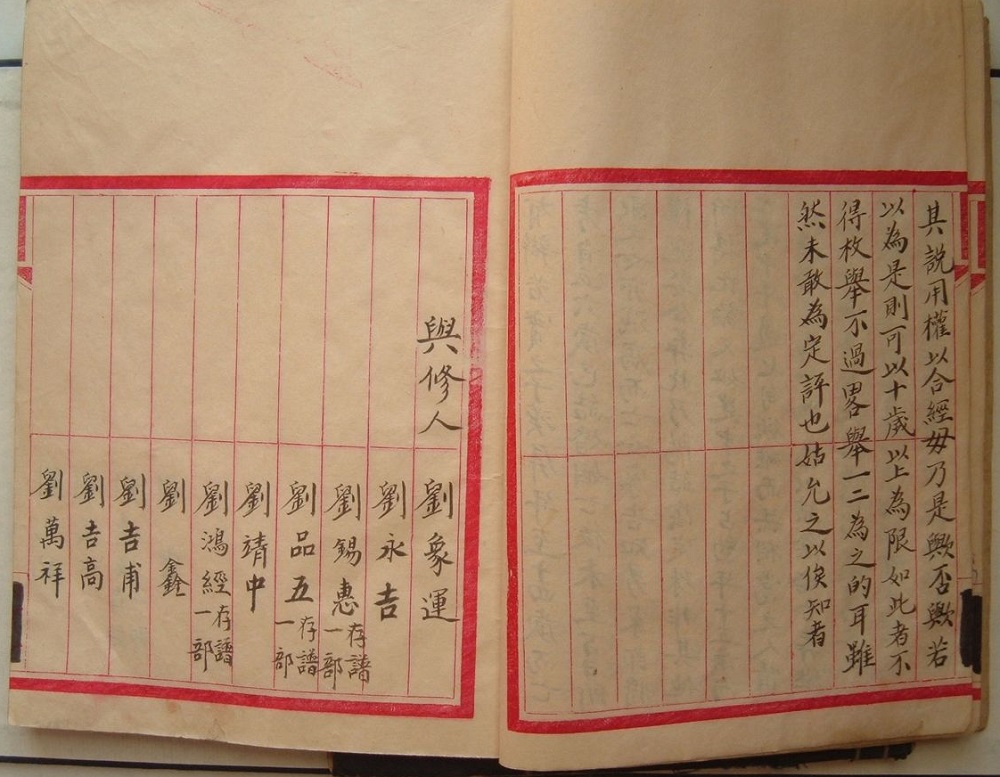 其說用權以合經毋乃是歟否歟若
以為是則可以十歲以上為限如此者不
得枚舉不過畧舉一二為之的耳雖
然未敢為定評也姑允之以俟知者
與修人
劉象運
劉永吉
劉錫惠 存譜一部
劉品五 存譜一部
劉靖中
劉鴻經 存譜一部
劉鑫
劉吉甫
劉吉高
劉萬祥